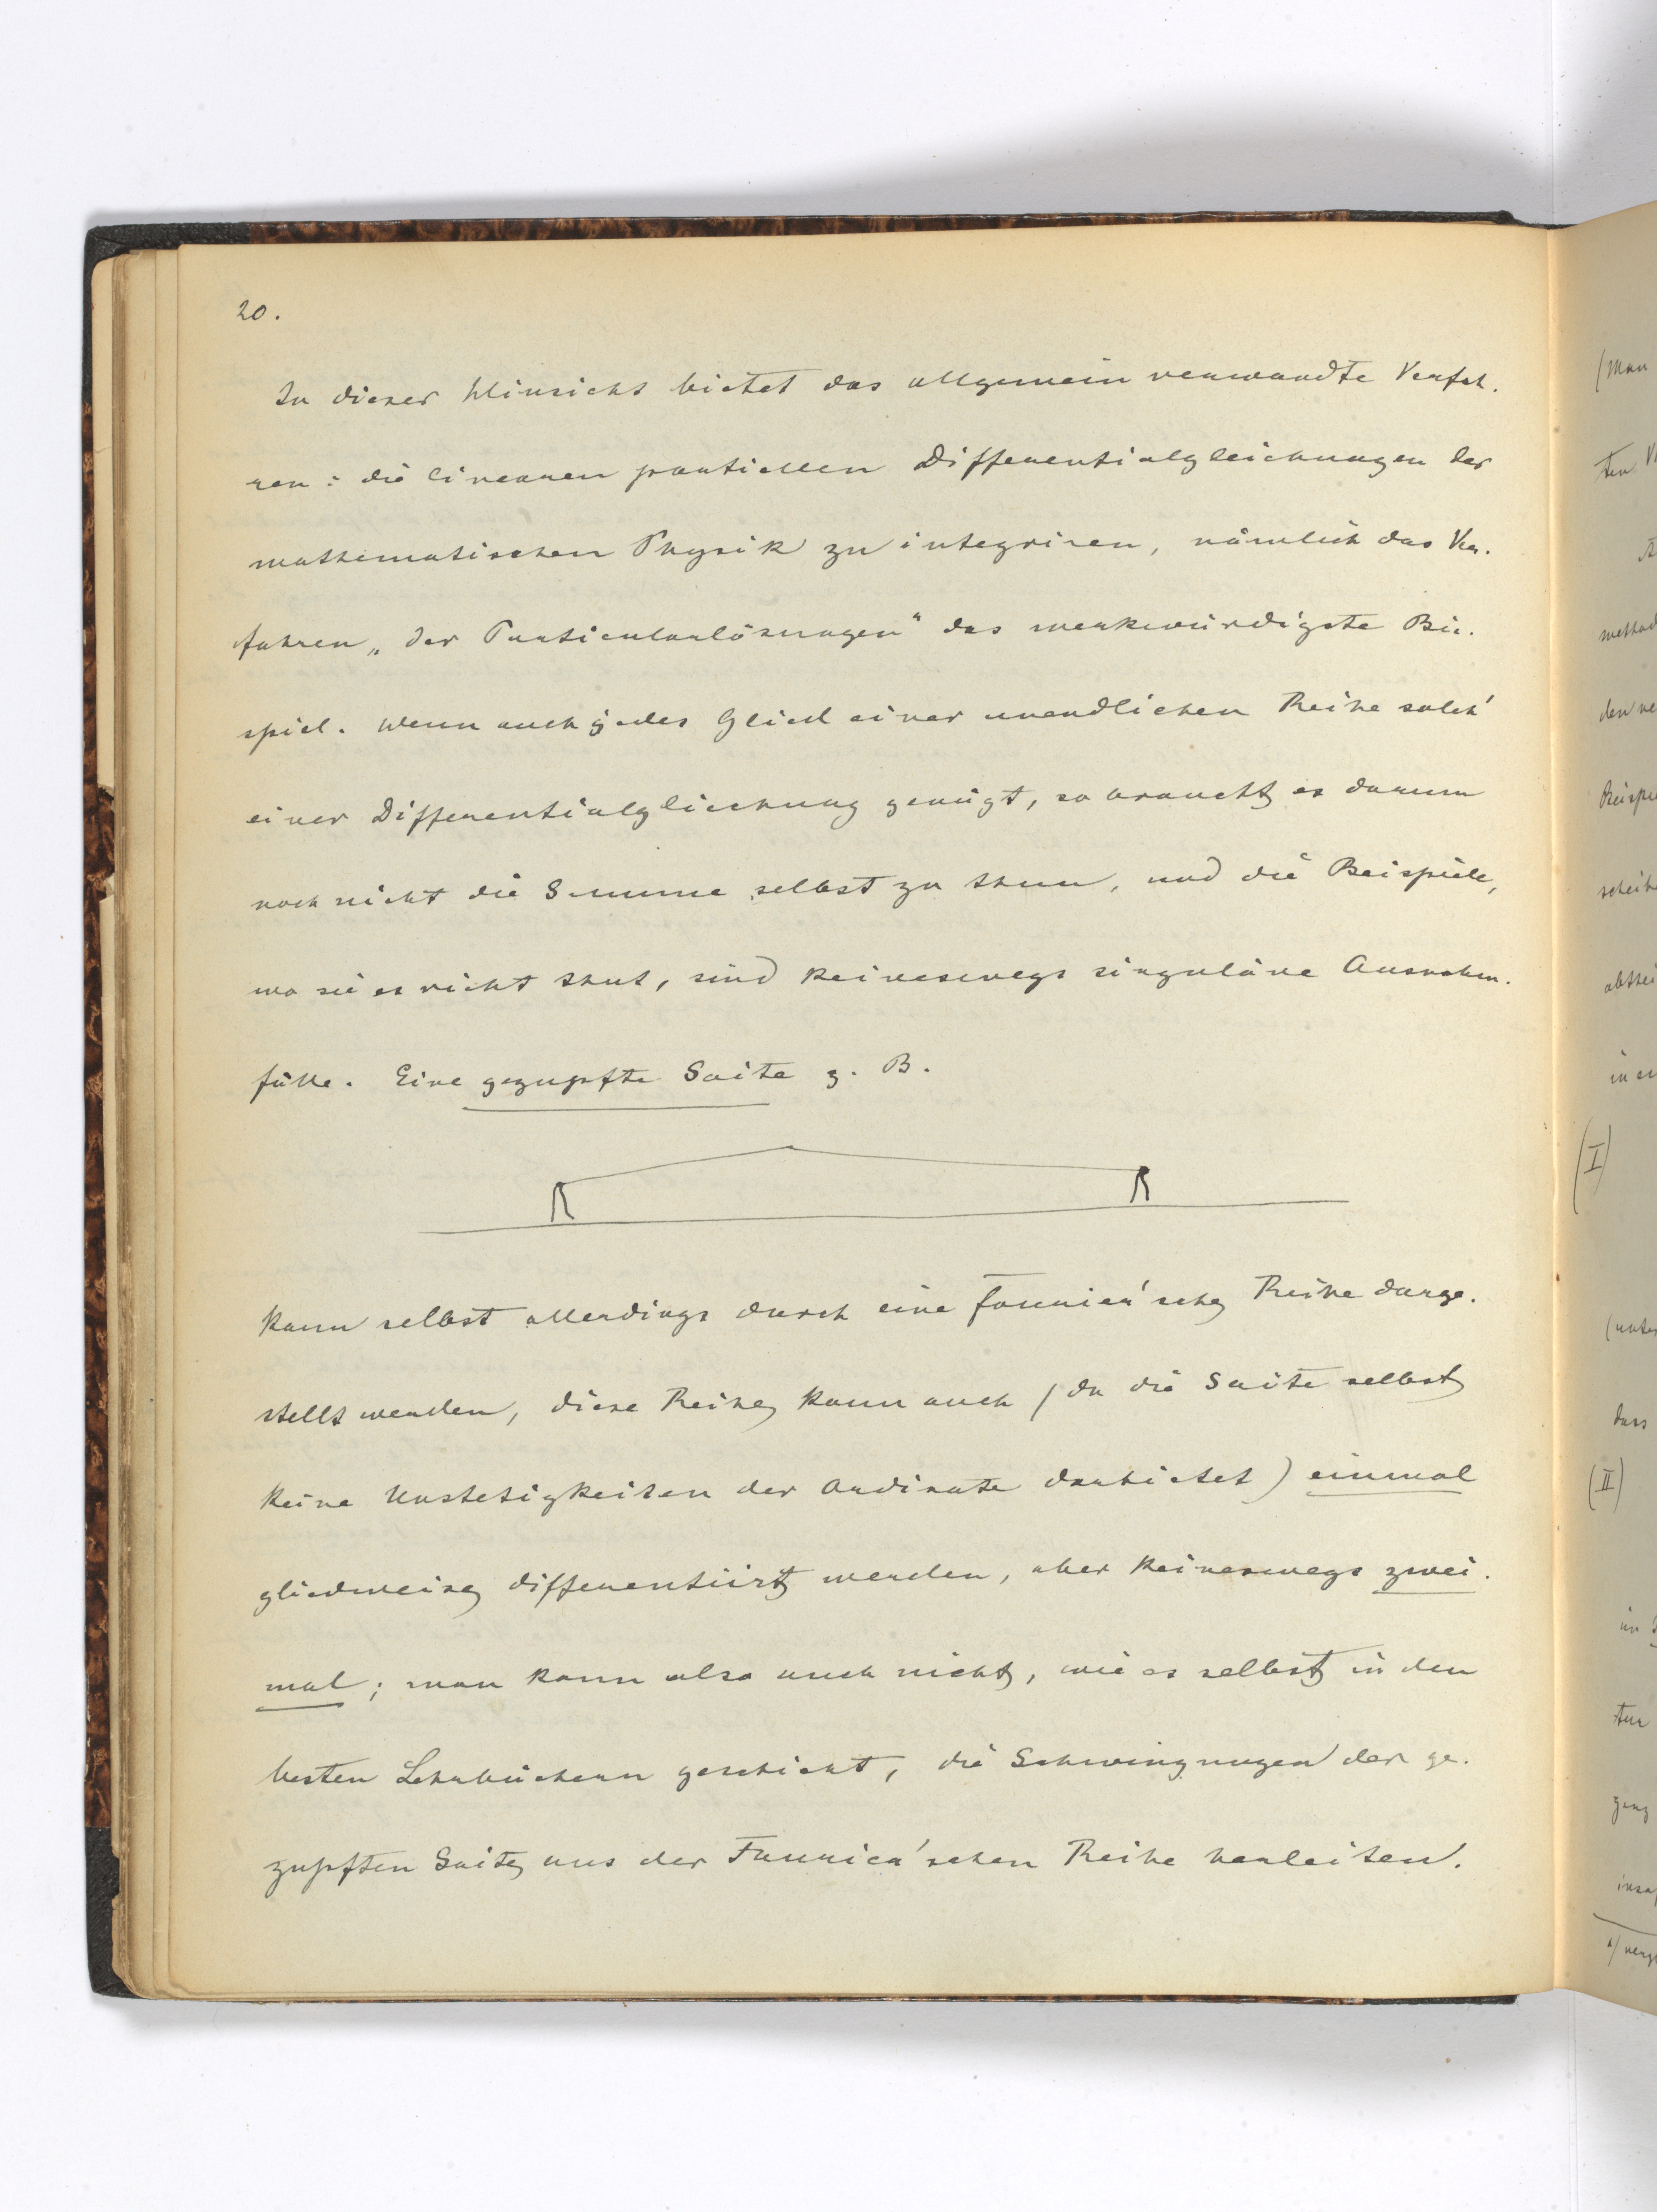 20.
In dieser Hinsicht bietet das allgemein verwandte Verfah-
ren: die linearen partiellen Differentialgleichungen der
mathematischen Physik zu integriren, nämlich das Ver-
fahren „der Particularlösungen" das merkwürdigste Bei-
spiel. Wenn auch jedes Glied einer unendlichen Reihe solch'
einer Differentialgleichung genügt, so braucht es darum
noch nicht die Summe selbst zu thun, und die Beispiele,
wo sie es nicht thut, sind keineswegs singuläre Ausnahm-
fälle. Eine gezupfte Saite z. B.
kann selbst allerdings durch eine Fourier'sche Reihe darge-
stellt werden, diese Reihe kann auch (da die Saite selbst
keine Unstetigkeiten der Ordinate darbietet) einmal
gliedweise differentiirt werden, aber keineswegs zwei-
mal; man kann also auch nicht, wie es selbst in den
besten Lehrbüchern geschieht, die Schwingungen der ge-
zupften Saite aus der Fourier'schen Reihe herleiten.
(Man
ten
method
den
Beispie
(I)
dass
(II)